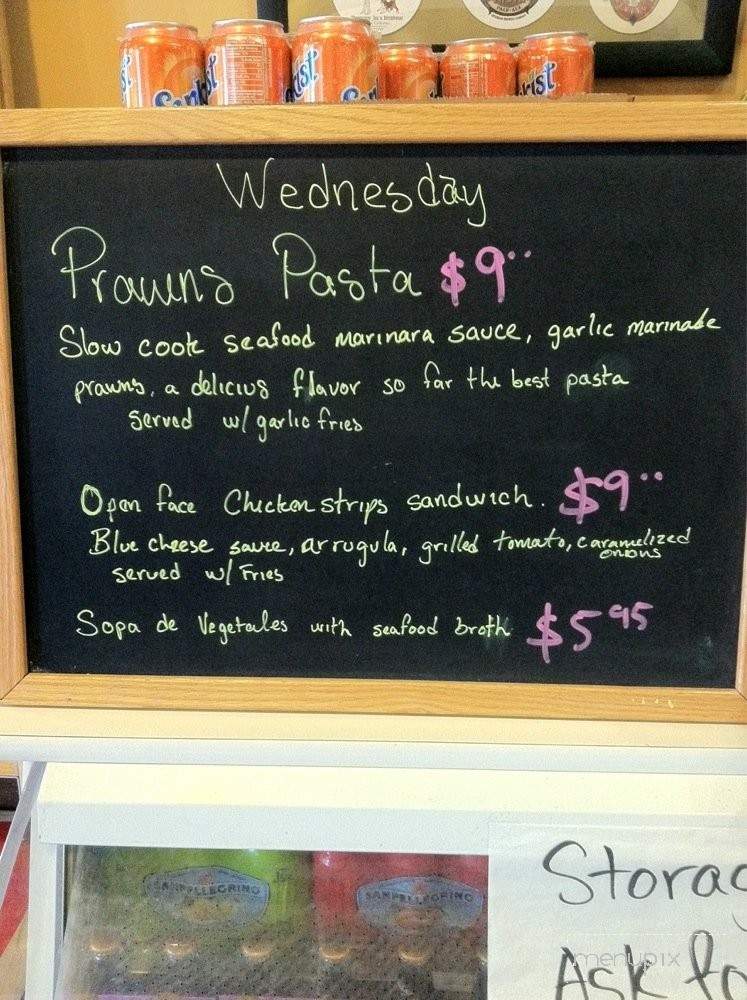 Sunkist
Wednesday
Prawns Pasta $9..
Slow cook seafood marinara sauce, garlic marinade
prawns, a delicius flavor so far the best pasta
served w/ garlic fries
Open face Chicken strips sandwich. $9..
Blue cheese sauce, arrugula, grilled tomato, caramelized
onions
served w/ Fries
Sopa de Vegetales with seafood broth $5 95
SANPELLEGRINO SANPELLEGRINO
Storag
Ask to
menupix